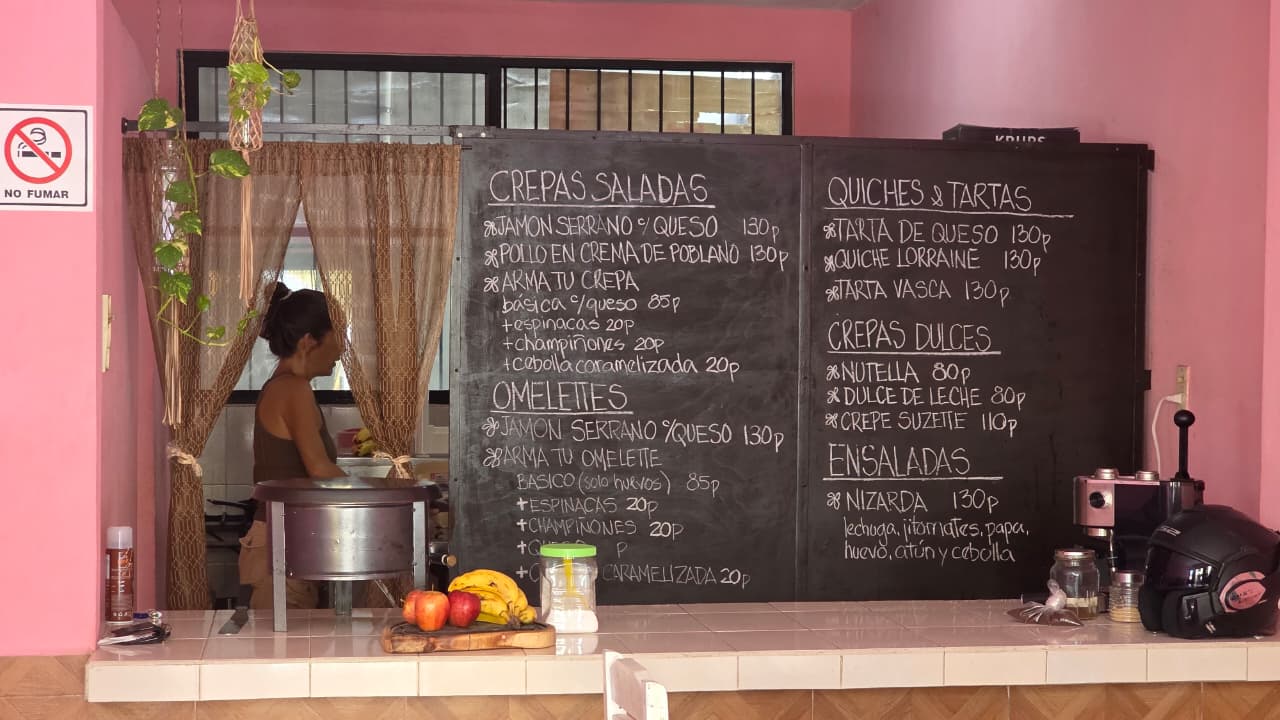 NO FUMAR
KRUPS
CREPAS SALADAS
JAMON SERRANO c/ QUESO 130p
POLLO EN CREMA DE POBLANO 130p
ARMA TU CREPA
básica c/queso 85p
+espinacas 20p
+champiñones 20p
+cebolla caramelizada 20p
OMELETTES
JAMON SERRANO c/QUESO 130p
ARMA TU OMELETTE
BASICO (solo huevos) 85p
+ESPINACAS 20p
+CHAMPIÑONES 20p
+QUESO p
+C CARAMELIZADA 20p
QUICHES & TARTAS
TARTA DE QUESO 130p
QUICHE LORRAINE 130p
TARTA VASCA 130p
CREPAS DULCES
NUTELLA 80p
DULCE DE LECHE 80p
CREPE SUZETTE 110p
ENSALADAS
NIZARDA 130p
lechuga, jitomates, papa,
huevo, atún y cebolla